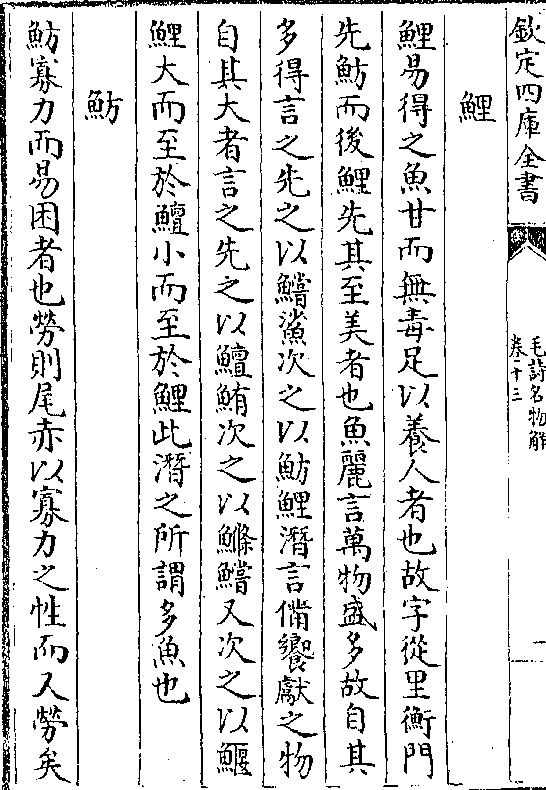 欽定四庫全書
毛詩名物解
卷十三
一
鯉
鯉易得之魚甘而無毒足以養人者也故字從里衡門
先魴而後鯉先其至美者也魚麗言萬物盛多故自其
多得言之先之以鱨鯊次之以魴鯉潛言備饗獻之物
自其大者言之先之以鱣鮪次之以鰷鱨又次之以鰋
鯉大而至於鱣小而至於鯉此潛之所謂多魚也
魴
魴寡力而易困者也勞則尾赤以寡力之性而又勞矣